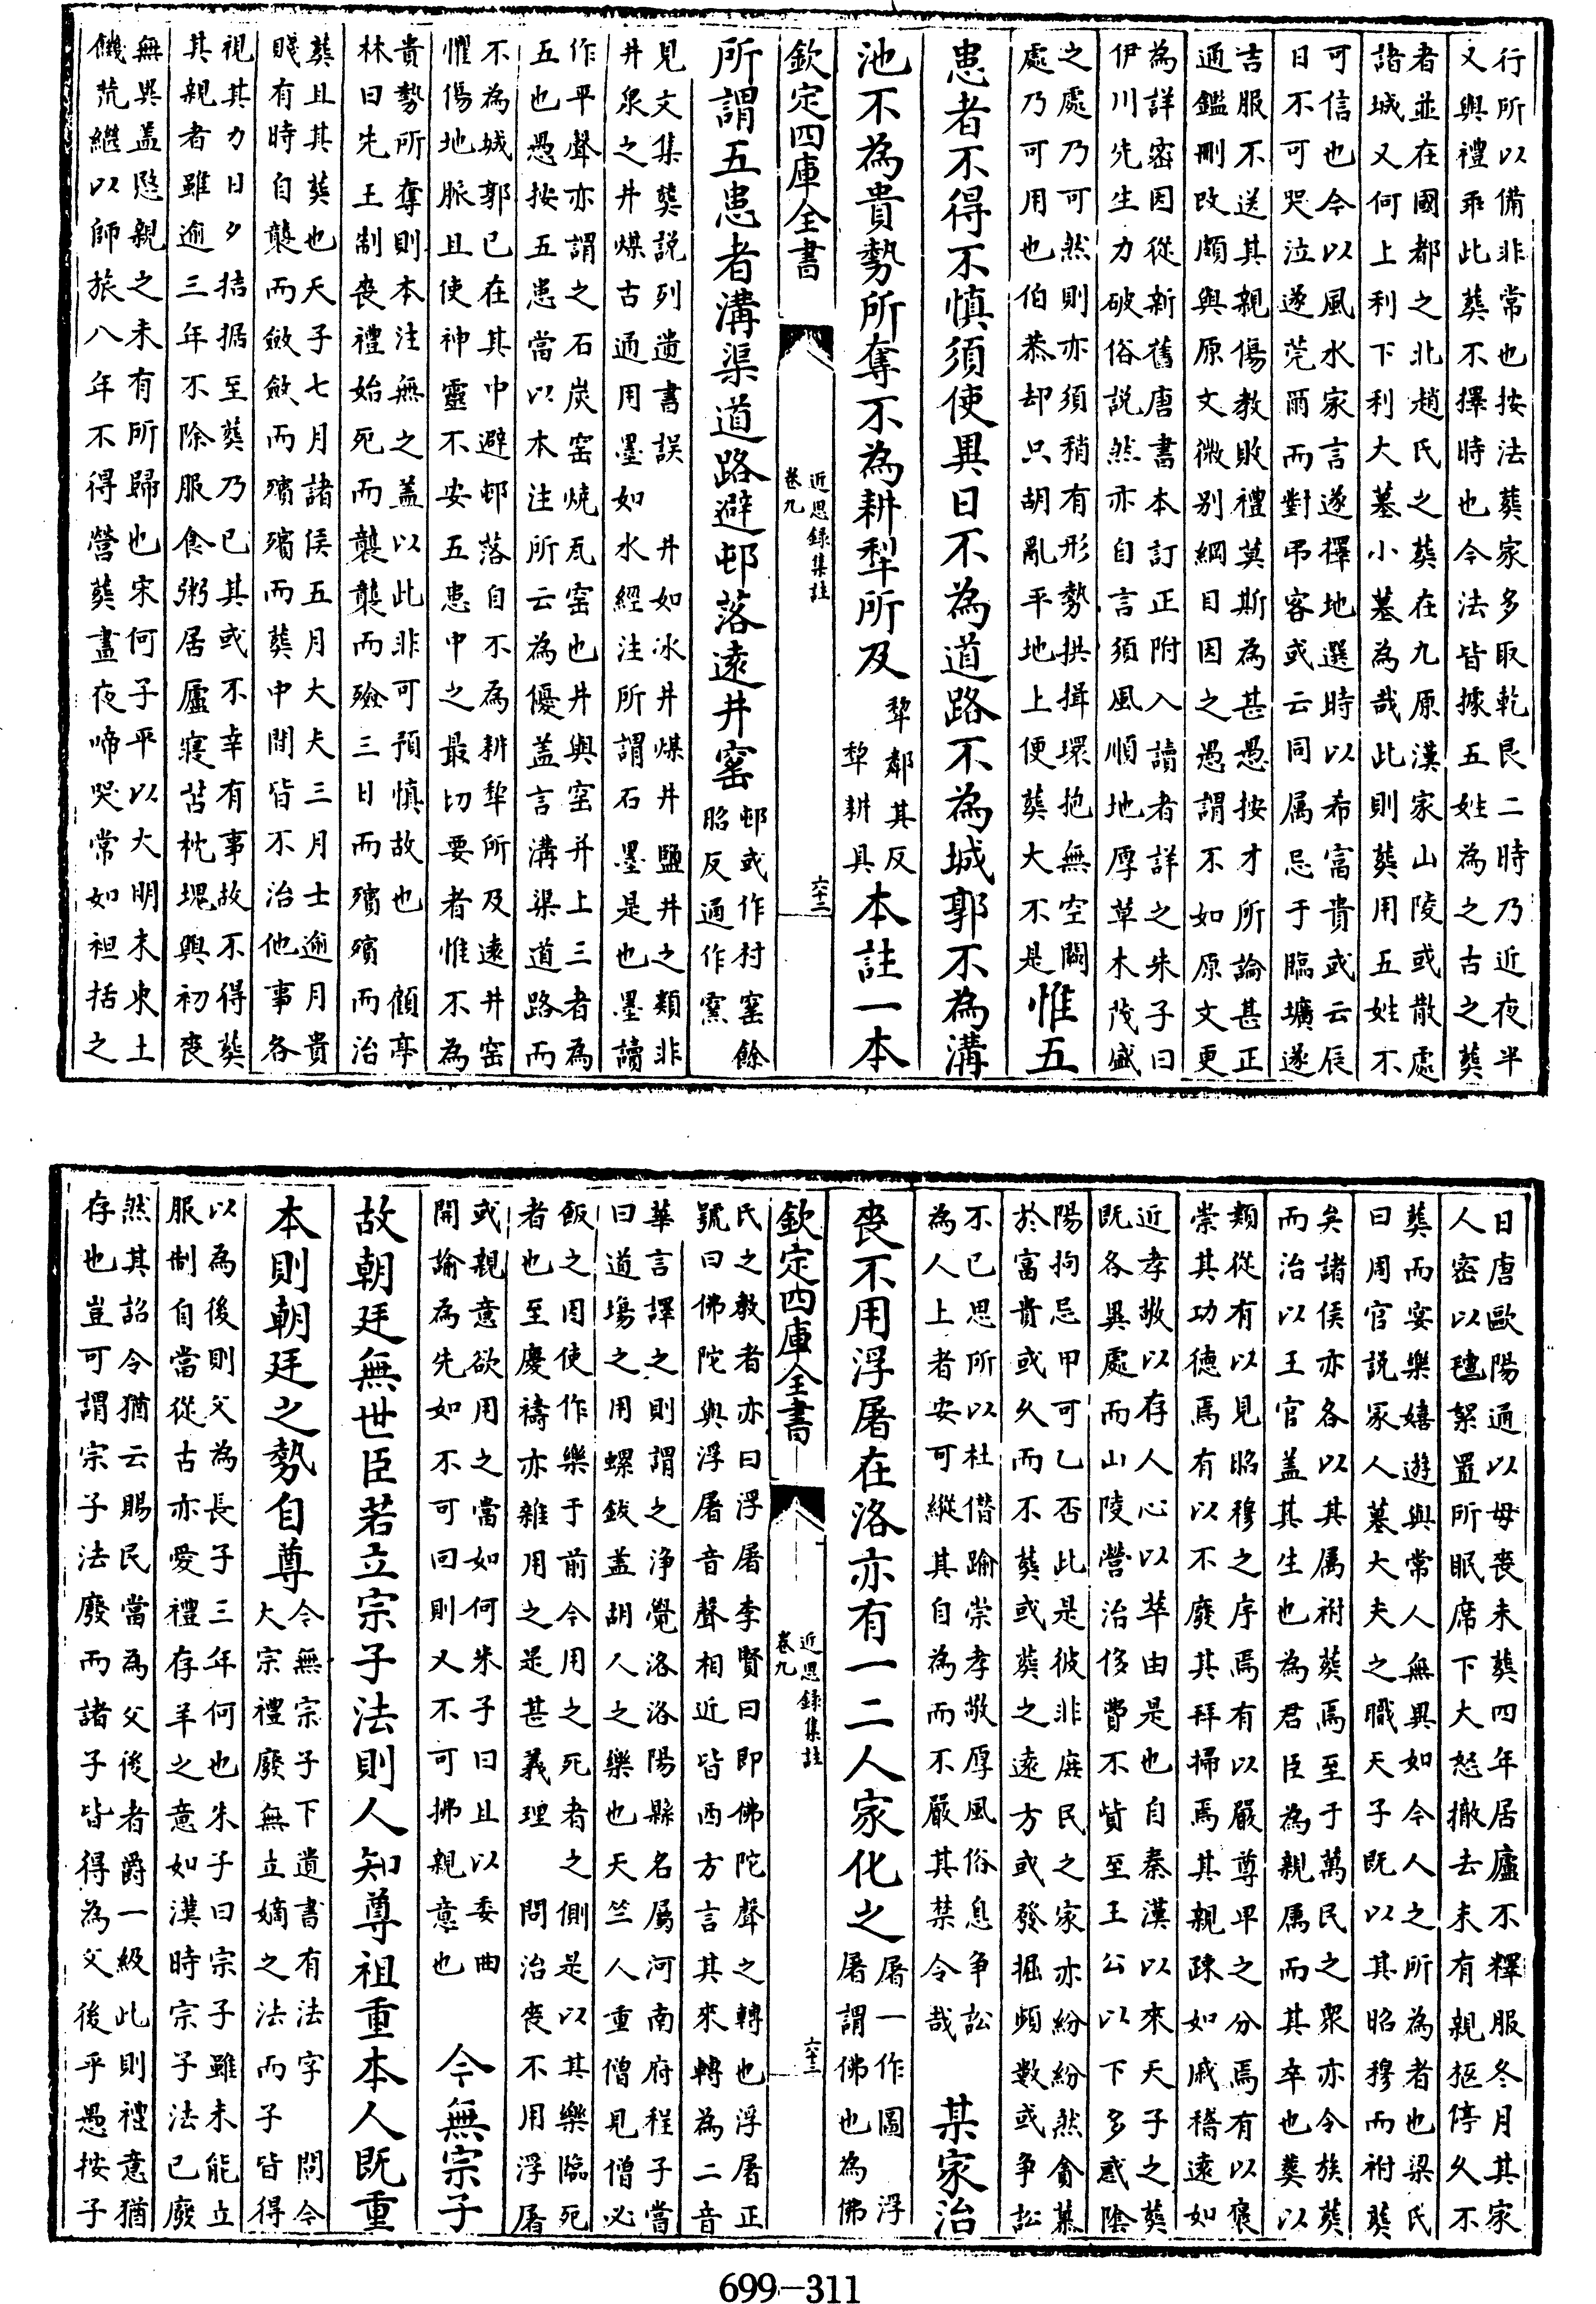 行所以備非常也按法葬家多取乾艮二時乃近夜半
又與禮乖此葬不擇時也今法皆據五姓為之古之葬
者並在國都之北趙氏之葬在九原漢家山陵或散處
諸城又何上利下利大墓小墓為哉此則葬用五姓不
可信也今以風水家言遂擇地選時以希富貴或云辰
日不可哭泣遂莞爾而對弔客或云同属忌于臨壙遂
吉服不送其親傷教敗禮莫斯為甚愚按才所論甚正
通鑑刪改頗與原文微别綱目因之愚謂不如原文更
為詳密因從新舊唐書本訂正附入讀者詳之朱子曰
伊川先生力破俗説然亦自言須風順地厚草木茂盛
之處乃可然則亦須稍有形勢拱揖環抱無空闕
處乃可用也伯恭却只胡亂平地上便葬大不是
惟五
患者不得不慎須使異日不為道路不為城郭不為溝
池不為貴勢所奪不為耕犁所及
犂鄰其反
犂耕具
本註一本
欽定四庫全書
近思録集註
卷九
六十二
所謂五患者溝渠道路避邨落遠井窰
邨或作村窰餘
昭反通作窯
見文集葬説列遺書誤 井如冰井煤井鹽井之類非
井泉之井煤古通用墨如水經注所謂石墨是也墨讀
作平聲亦謂之石炭窑燒瓦窑也井與窑并上三者為
五也愚按五患當以本注所云為優盖言溝渠道路而
不為城郭已在其中避邨落自不為耕犂所及遠井窑
懼傷地脈且使神靈不安五患中之最切要者惟不為
貴勢所奪則本注無之盖以此非可預慎故也 顧亭
林曰先王制喪禮始死而襲襲而殮三日而殯殯而治
葬且其葬也天子七月諸侯五月大夫三月士逾月貴
賤有時自襲而斂斂而殯殯而葬中間皆不治他事各
視其力日夕拮据至葬乃已其或不幸有事故不得葬
其親者雖逾三年不除服食粥居廬寢苫枕塊與初喪
無異盖慇親之未有所歸也宋何子平以大明末東土
饑荒繼以師旅八年不得營葬晝夜啼哭常如袒括之
日唐歐陽通以母喪未葬四年居廬不釋服冬月其家
人密以氊絮置所眠席下大怒撤去未有親柩停久不
葬而宴樂嬉遊與常人無異如今人之所為者也梁氏
曰周官説冢人墓大夫之職天子既以其昭穆而祔葬
矣諸侯亦各以其属祔葬焉至于萬民之衆亦令族葬
而治以王官盖其生也為君臣為親属而其卒也葬以
類從有以見昭穆之序焉有以嚴尊卑之分焉有以褒
崇其功德焉有以不廢其拜掃焉其親疎如戚稽逺如
近孝敬以存人心以萃由是也自秦漢以來天子之葬
既各異處而山陵營治侈費不貲至王公以下多惑陰
陽拘忌甲可乙否此是彼非庶民之家亦紛紛然貪慕
於富貴或久而不葬或葬之遠方或發掘頻數或爭訟
不已思所以杜僭踰崇孝敬厚風俗息争訟
為人上者安可縱其自為而不嚴其禁令哉
某家治
喪不用浮屠在洛亦有一二人家化之
屠一作圖 浮
屠謂佛也為佛
欽定四庫全書
近思録集註
卷九
六十三
氏之教者亦曰浮屠李賢曰即佛陀聲之轉也浮屠正
號曰佛陀與浮屠音聲相近皆西方言其來轉為二音
華言譯之則謂之浄覺洛洛陽縣名屬河南府程子嘗
曰道塲之用螺鈸盖胡人之樂也天竺人重僧見僧必
飯之因使作樂于前今用之死者之側是以其樂臨死
者也至慶禱亦雜用之是甚義理 問治喪不用浮屠
或親意欲用之當如何朱子曰且以委曲
開諭為先如不可回則又不可拂親意也
今無宗子
故朝廷無世臣若立宗子法則人知尊祖重本人既重
本則朝廷之勢自尊
今無宗子下遺書有法字 問今
大宗禮廢無立嫡之法而子皆得
以為後則父為長子三年何也朱子曰宗子雖未能立
服制自當從古亦愛禮存羊之意如漢時宗子法已廢
然其詔令猶云賜民當為父後者爵一級此則禮意猶
存也豈可謂宗子法廢而諸子皆得為父後乎愚按子
699-311